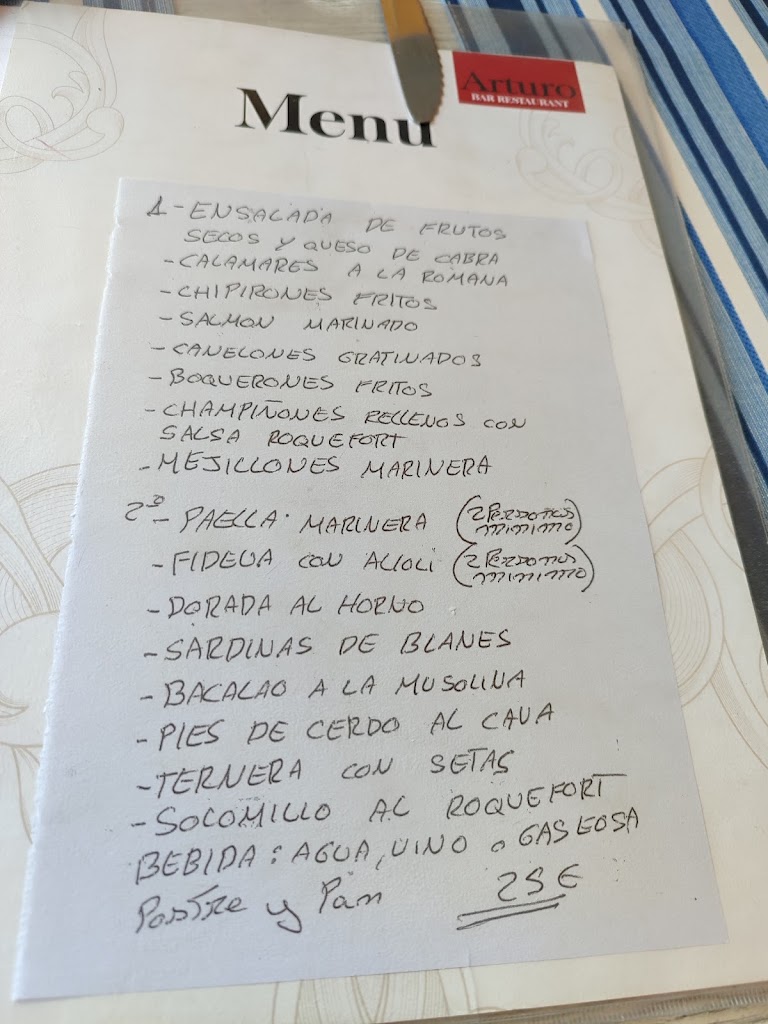 Arturo
BAR RESTAURANT
Menu
1 - ENSALADA DE FRUTOS
SECOS Y QUESO DE CABRA
- CALAMARES A LA ROMANA
- CHIPIRONES FRITOS
- SALMON MARINADO
- CANELONES GRATINADOS
- BOQUERONES FRITOS
- CHAMPIÑONES RELLENOS CON
SALSA ROQUEFORT
- MEJILLONES MARINERA
2º - PAELLA MARINERA (2 Personas
minimo)
- FIDEUA CON ALIOLI (2 Personas
minimo)
- DORADA AL HORNO
- SARDINAS DE BLANES
- BACALAO A LA MUSOLINA
- PIES DE CERDO AL CAVA
- TERNERA CON SETAS
- SOLOMILLO AL ROQUEFORT
BEBIDA: AGUA, VINO o GASEOSA
Postre y Pan 25 €